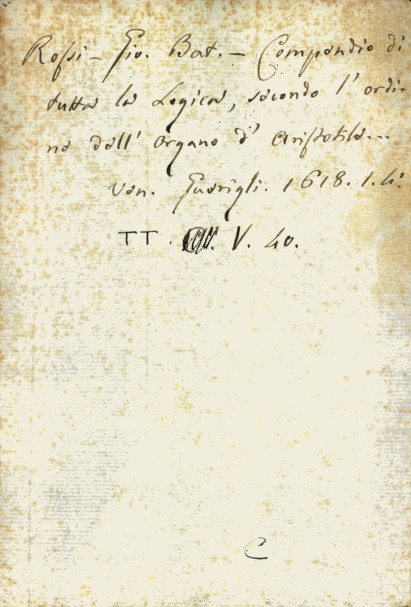 Rossi - Gio. Bat. - Compendio di
tutta la Logica, secondo l' ordi-
ne dell' Organo d' Aristotile...
Ven. Guerigli. 1618. 1. 4.°
TT. V. 40.
C